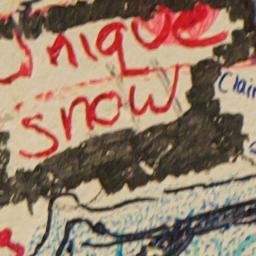 unique
snow
Clai